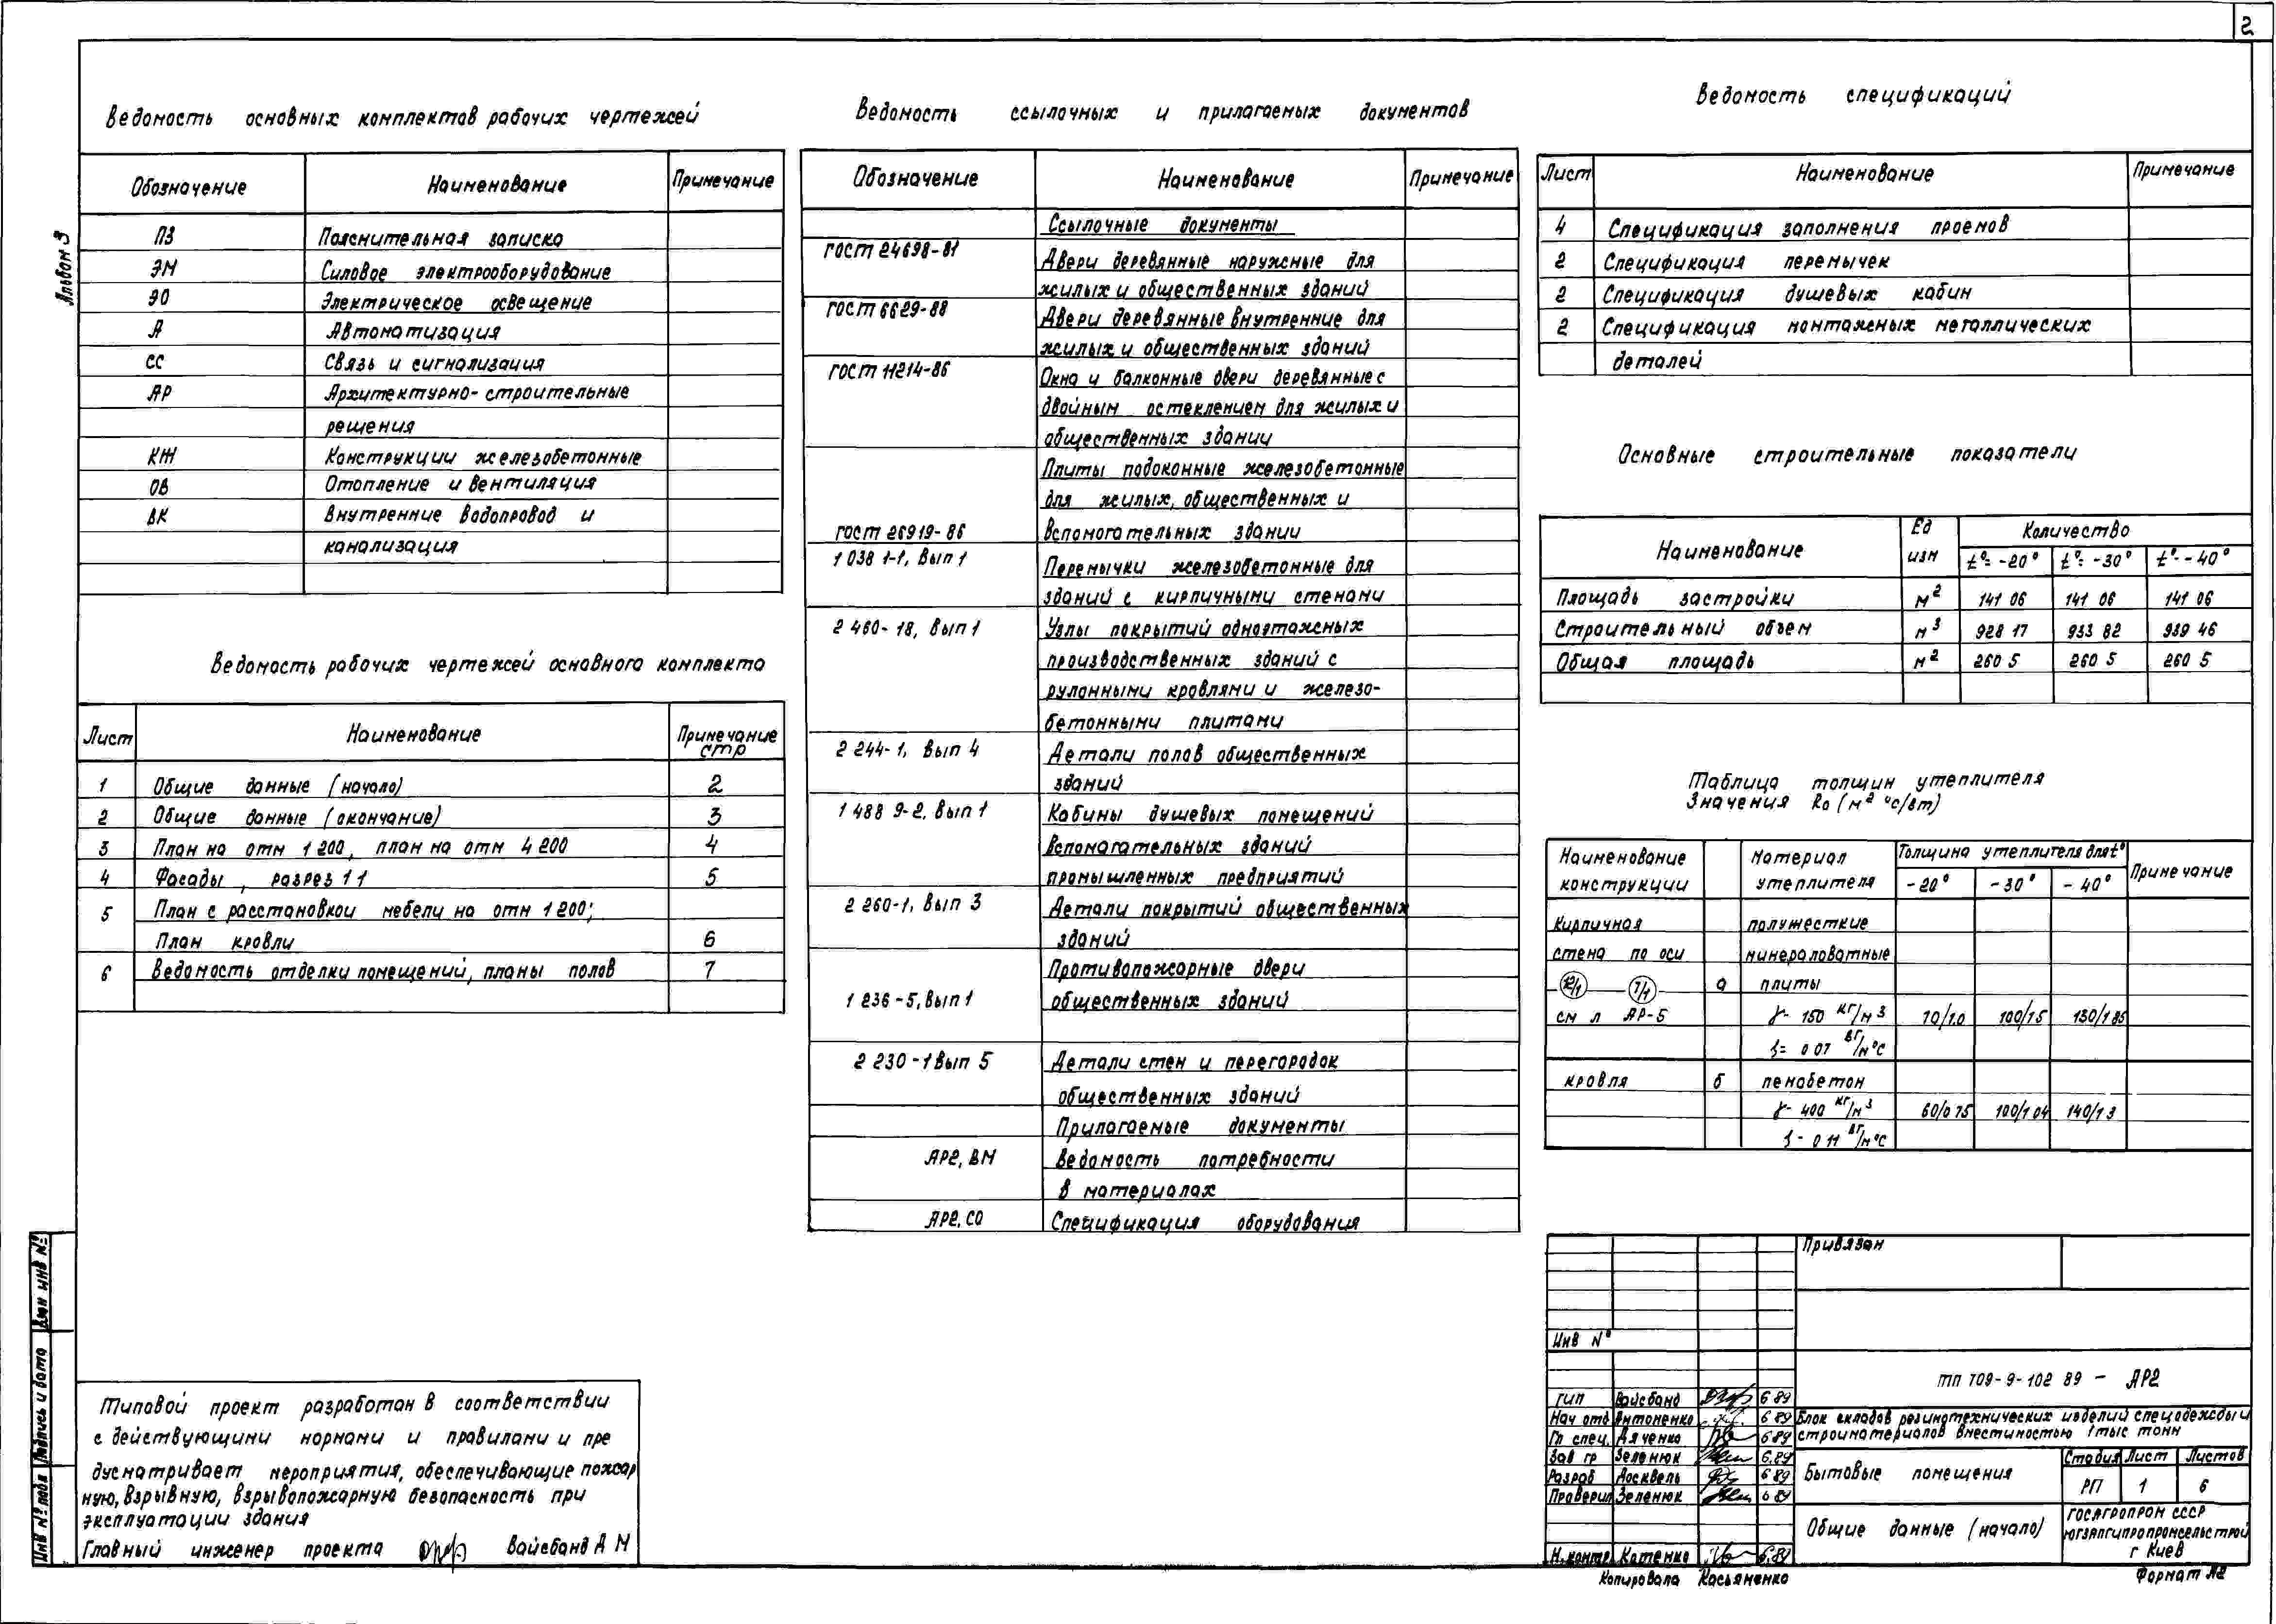 2
Альбом 3
Ведомость основных комплектов рабочих чертежей
Обозначение Наименование Примечание
ПЗ Пояснительная записка
ЭМ Силовое электрооборудование
ЭО Электрическое освещение
А Автоматизация
СС Связь и сигнализация
АР Архитектурно-строительные
решения
КЖ Конструкции железобетонные
ОВ Отопление и вентиляция
ВК Внутренние водопровод и
канализация
Ведомость рабочих чертежей основного комплекта
Лист Наименование Примечание стр
1 Общие данные (начало) 2
2 Общие данные (окончание) 3
3 План на отм 1 200, план на отм 4 200 4
4 Фасады, разрез 1 1 5
5 План с расстановкой мебели на отм 1 200;
План кровли 6
6 Ведомость отделки помещений, планы полов 7
Ведомость ссылочных и прилагаемых документов
Обозначение Наименование Примечание
Ссылочные документы
ГОСТ 24698-81 Двери деревянные наружные для
жилых и общественных зданий
ГОСТ 6629-88 Двери деревянные внутренние для
жилых и общественных зданий
ГОСТ 11214-86 Окна и балконные двери деревянные с
двойным остеклением для жилых и
общественных здании
Плиты подоконные железобетонные
для жилых, общественных и
ГОСТ 26919-86 вспомогательных здании
1 038 1-1, Вып 1 Перемычки железобетонные для
зданий с кирпичными стенами
2 460-18, Вып 1 Узлы покрытий одноэтажных
производственных зданий с
рулонными кровлями и железо-
бетонными плитами
2 244-1, Вып 4 Детали полов общественных
зданий
1 488 9-2, Вып 1 Кабины душевых помещений
вспомагательных зданий
промышленных предприятий
2 260-1, Вып 3 Детали покрытий общественных
зданий
Противопожарные двери
1 236-5, Вып 1 общественных зданий
2 230-1 Вып 5 Детали стен и перегородок
общественных зданий
Прилагаемые документы
АР2, ВМ Ведомость потребности
в материалах
АР2, СО Спецификация оборудования
Ведомость спецификаций
Лист Наименование Примечание
4 Спецификация заполнения проемов
2 Спецификация перемычек
2 Спецификация душевых кабин
2 Спецификация монтажных металлических
деталей
Основные строительные показатели
Наименование Ед изм Количество
t°= -20° t°= -30° t°- -40°
Площадь застройки м² 141 06 141 06 141 06
Строительный объем м³ 928 17 933 82 939 46
Общая площадь м² 260 5 260 5 260 5
Таблица толщин утеплителя
Значения Ro (м² °с/вт)
Наименование конструкции Материал утеплителя Толщина утеплителя для t° Примечание
-20° -30° -40°
Кирпичная полужесткие
стена по оси минераловатные
12/1 7/1 а плиты
см л АР-5 γ- 150 кг/м³ 70/1.0 100/1 5 130/1 85
0 07 вт/м°С
кровля б пенобетон
γ- 400 кг/м³ 60/0 75 100/1 04 140/1 3
0 11 вт/м°С
Типовой проект разработан в соответствии
с действующими нормами и правилами и пре
дусматривает мероприятия, обеспечивающие пожар
ную, взрывную, взрывопожарную безопасность при
эксплуатации здания
Главный инженер проекта Вайсбанд А М
Взам инв №
Подпись и дата
Инв № подл
Привязан
Инв №
ТП 709-9-102 89 - АР2
ГИП Вайсбанд 6 89
Нач отд Антоненко 6 89
Гл спец. Дяченко 6 89
Зав гр Зеленюк 6.89
Разраб Москвель 6 89
Проверил Зеленюк 6 89
Н. контр. Катенко 6.89
Блок складов резинотехнических изделий спецодежды и
стройматериалов вместимостью 1 тыс тонн
Бытовые помещения
Стадия Лист Листов
РП 1 6
Общие данные (начало)
ГОСАГРОПРОМ СССР
ЮГЗАПГИПРОПРОМСЕЛЬСТРОЙ
г Киев
Копировала Касьяненко
Формат А2